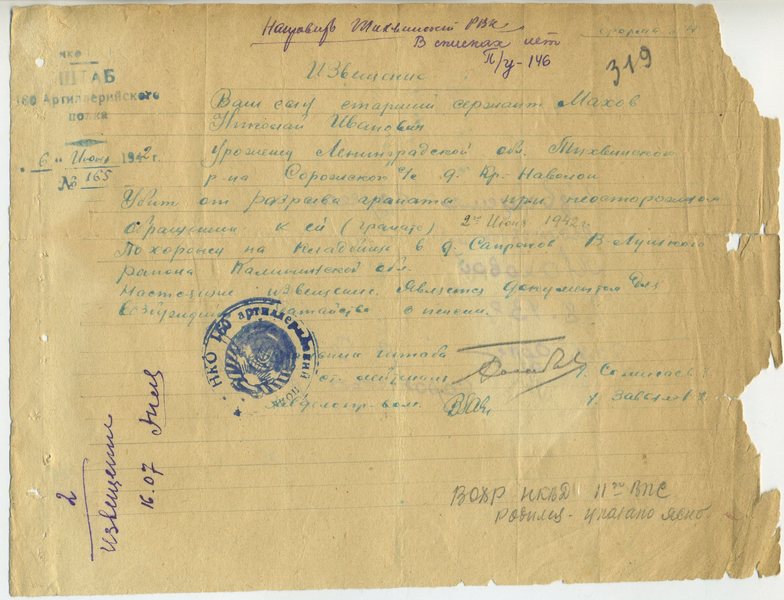 Направить Тихвинский РВК
В списках нет
П/у-146
319
НКО
ШТАБ
160 Артиллерийского
полка
"6" Июня 1942 г.
№ 165
Извещение
Ваш сын старший сержант Махов
Николай Иванович
Уроженец Ленинградской обл. Тихвинского
р-на Сорожского с/с д. Кр. Наволок
Убит от разрыва гранаты при неосторожном
обращении к ей (гранате) 2го Июня 1942г.
Похоронен на кладбище в д. Сапроново В-Лукского
района Калининской обл.
Настоящие извещение является документом для
возбуждения ходатайства о пенсии.
НКО 160 артиллерийский полк
штаба
ст. лейтенант
Завделопр-вом
2
Извещение
16.07
ВОХР НКВД 11го ВПС
родился - указано ясно.